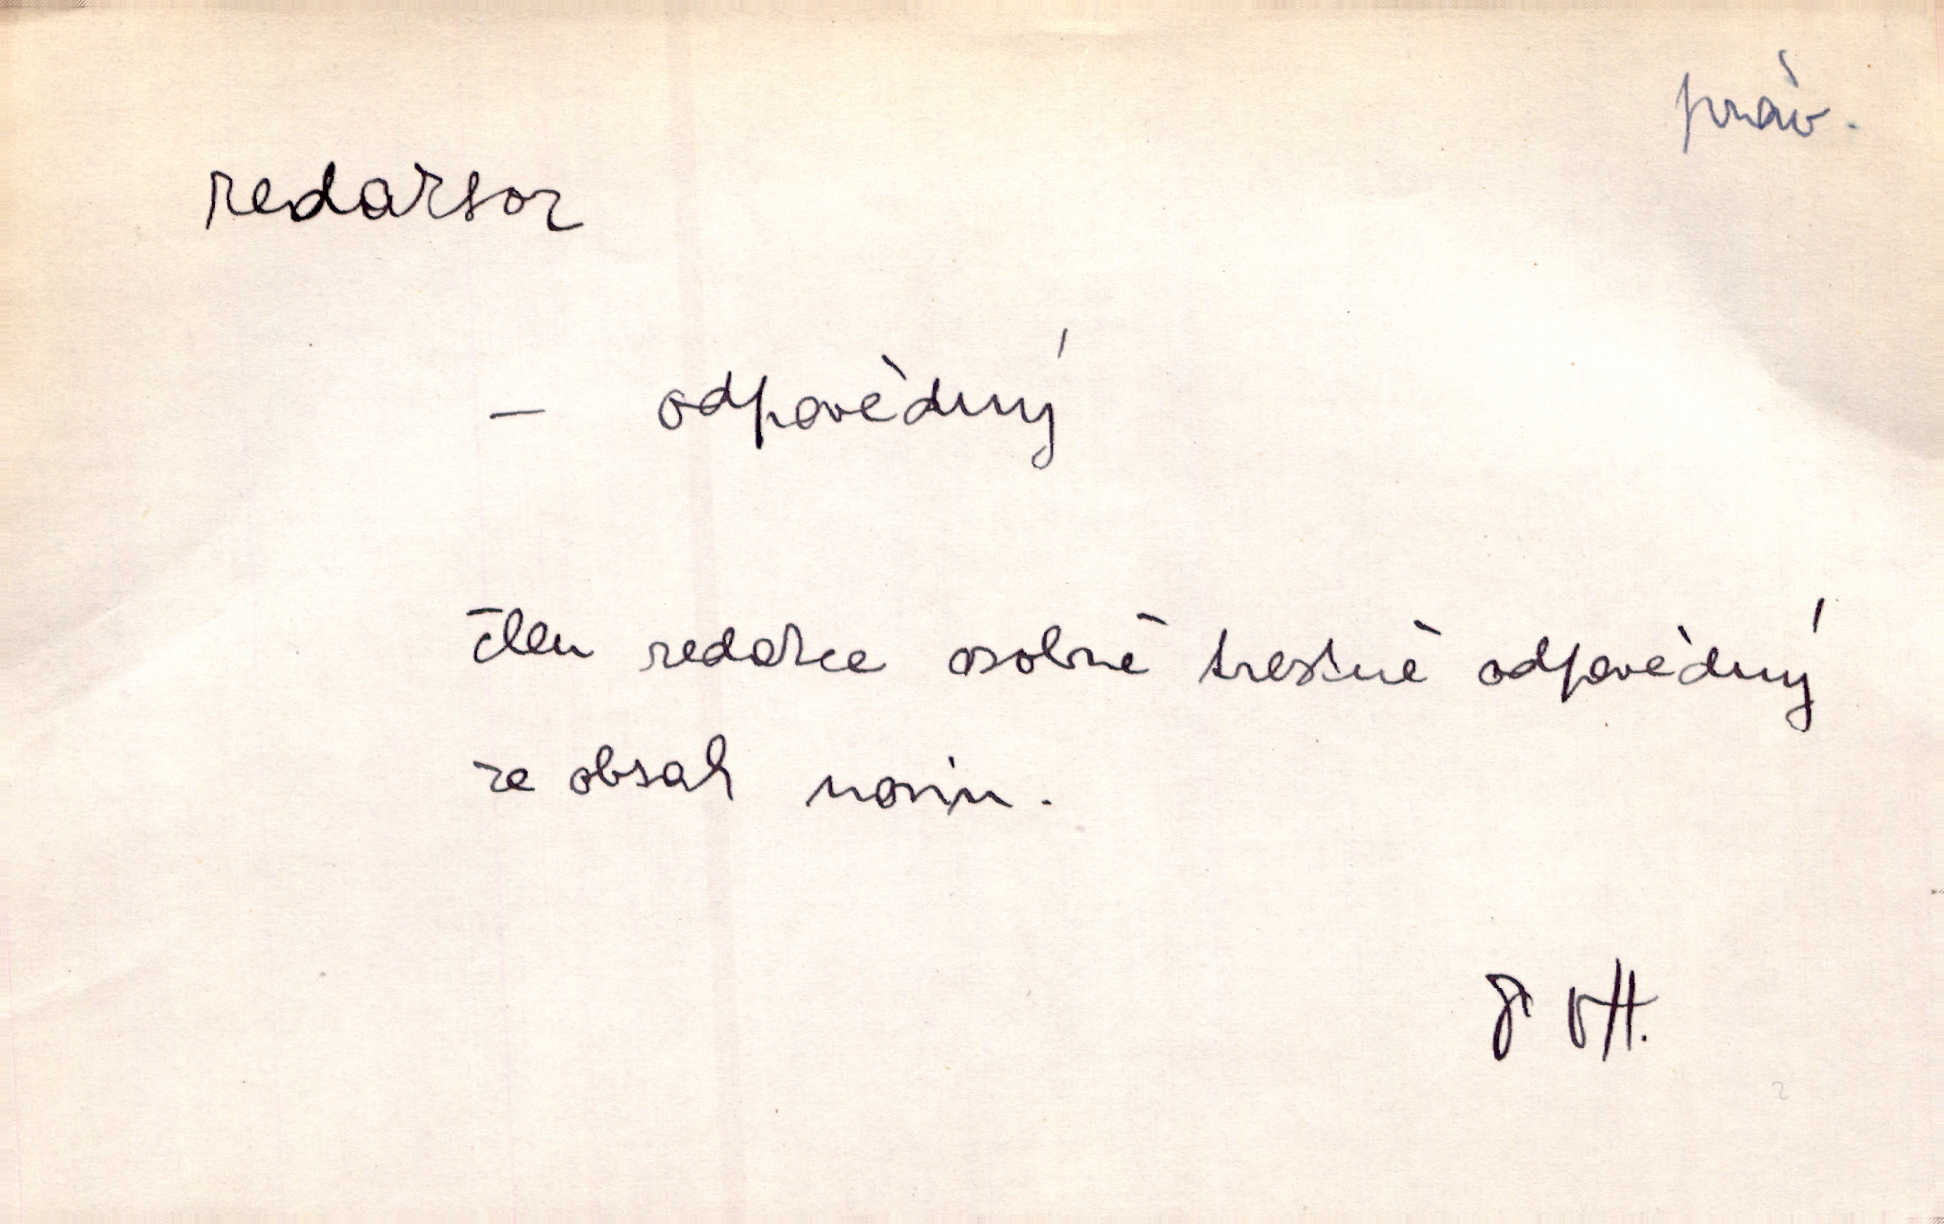 práv.
redaktor
— odpovědný
člen redakce osobně trestně odpovědný
za obsah novin.
VH.